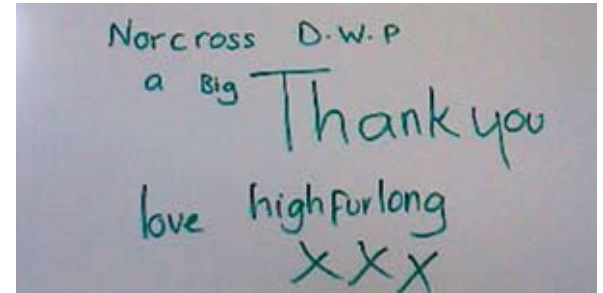 Norcross D.W.P
a Big Thank you
love highfurlong
XXX